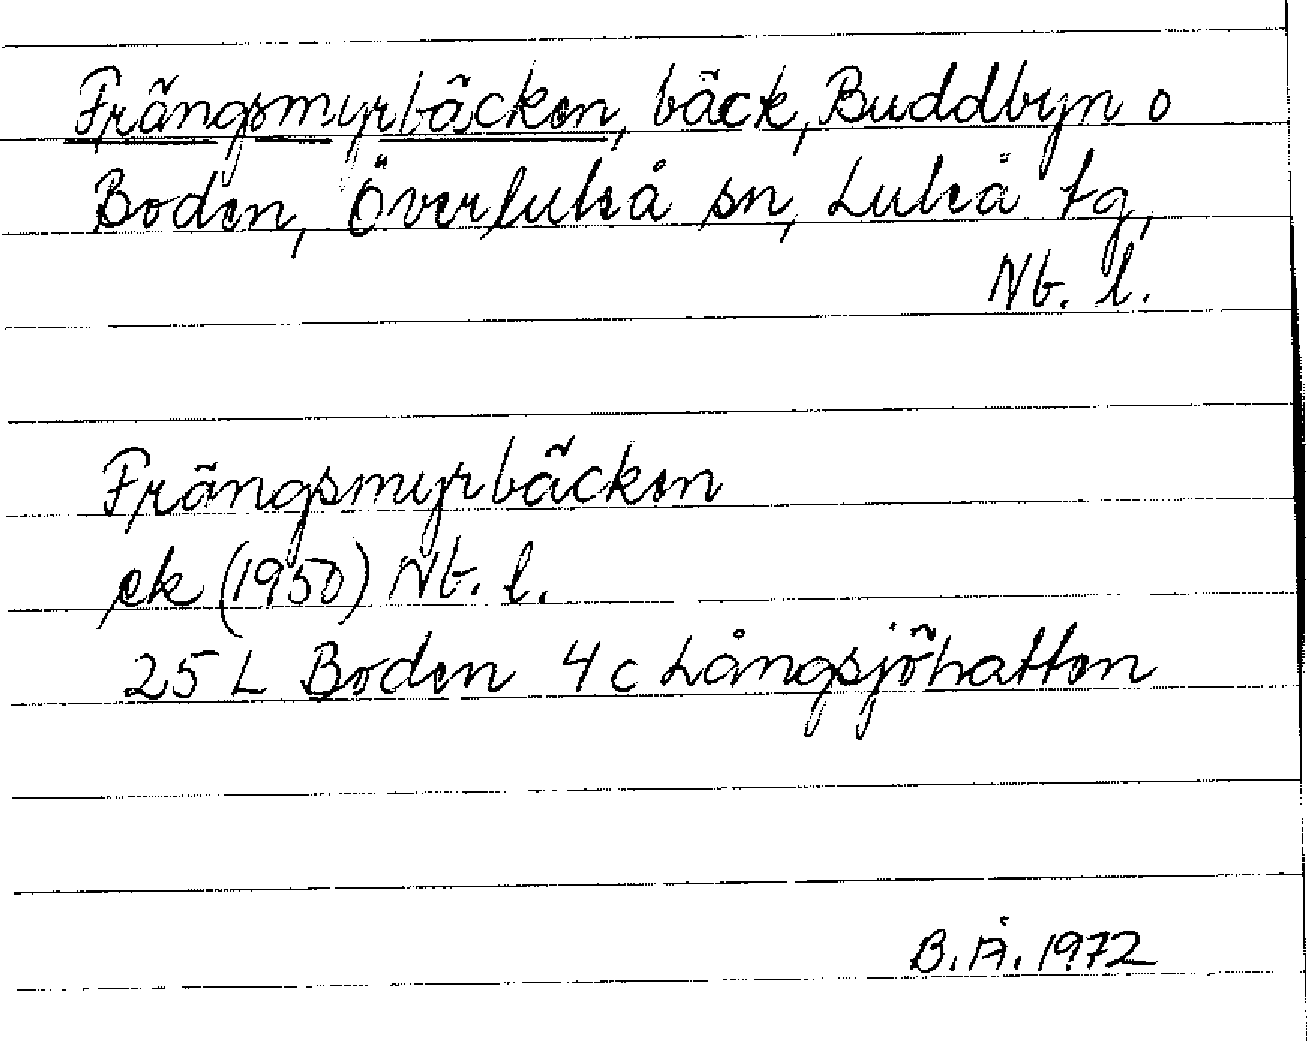 Frängsmyrbäcken, bäck, Buddbyn o
Boden, Överluleå sn, Luleå tg,
Nb. l.
Frängsmyrbäcken
ek (1950) Nb. l.
25 L Boden 4 c Långsjöhatten
B. Å. 1972